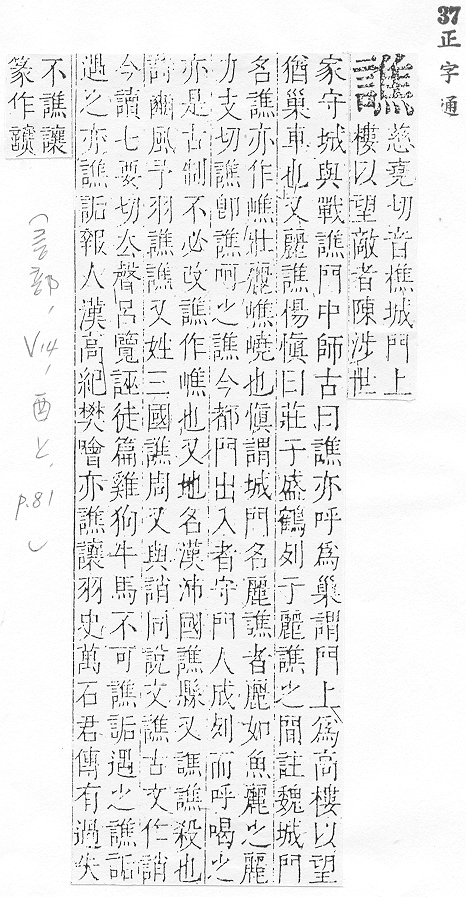 37 正字通
譙
慈堯切音樵城門上
樓以望敵者陳涉世
家守城與戰譙門中師古曰譙亦呼爲巢謂門上爲高樓以望
猶巢車也又麗譙楊愼曰莊子盛鶴列于麗譙之間註魏城門
名譙亦作嶕壯麗嶕嶢也愼謂城門名麗譙者麗如魚麗之麗
力支切譙卽譙呵之譙今都門出入者守門人成列而呼喝之
亦是古制不必改譙作嶕也又地名漢沛國譙縣又譙譙殺也
詩豳風予羽譙譙又姓三國譙周又與誚同說文譙古文作誚
今讀七要切去聲呂覽誣徒篇雞狗牛馬不可譙詬遇之譙詬
遇之亦譙詬報人漢高紀樊噲亦譙讓羽史萬石君傳有過失
不譙讓
篆作
(言部, V14, 酉上, p.81)